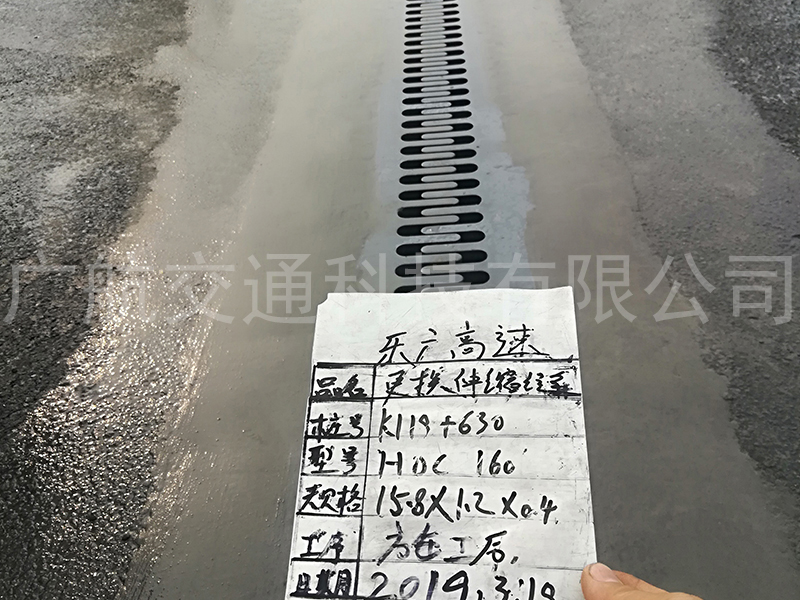 广航交通科技有限公司
乐广高速
品名 更换伸缩缝
桩号 K119+630
型号 HDC 160
规格 15.8X1.2X0.4
工序 施工后.
日期 2019.3.19